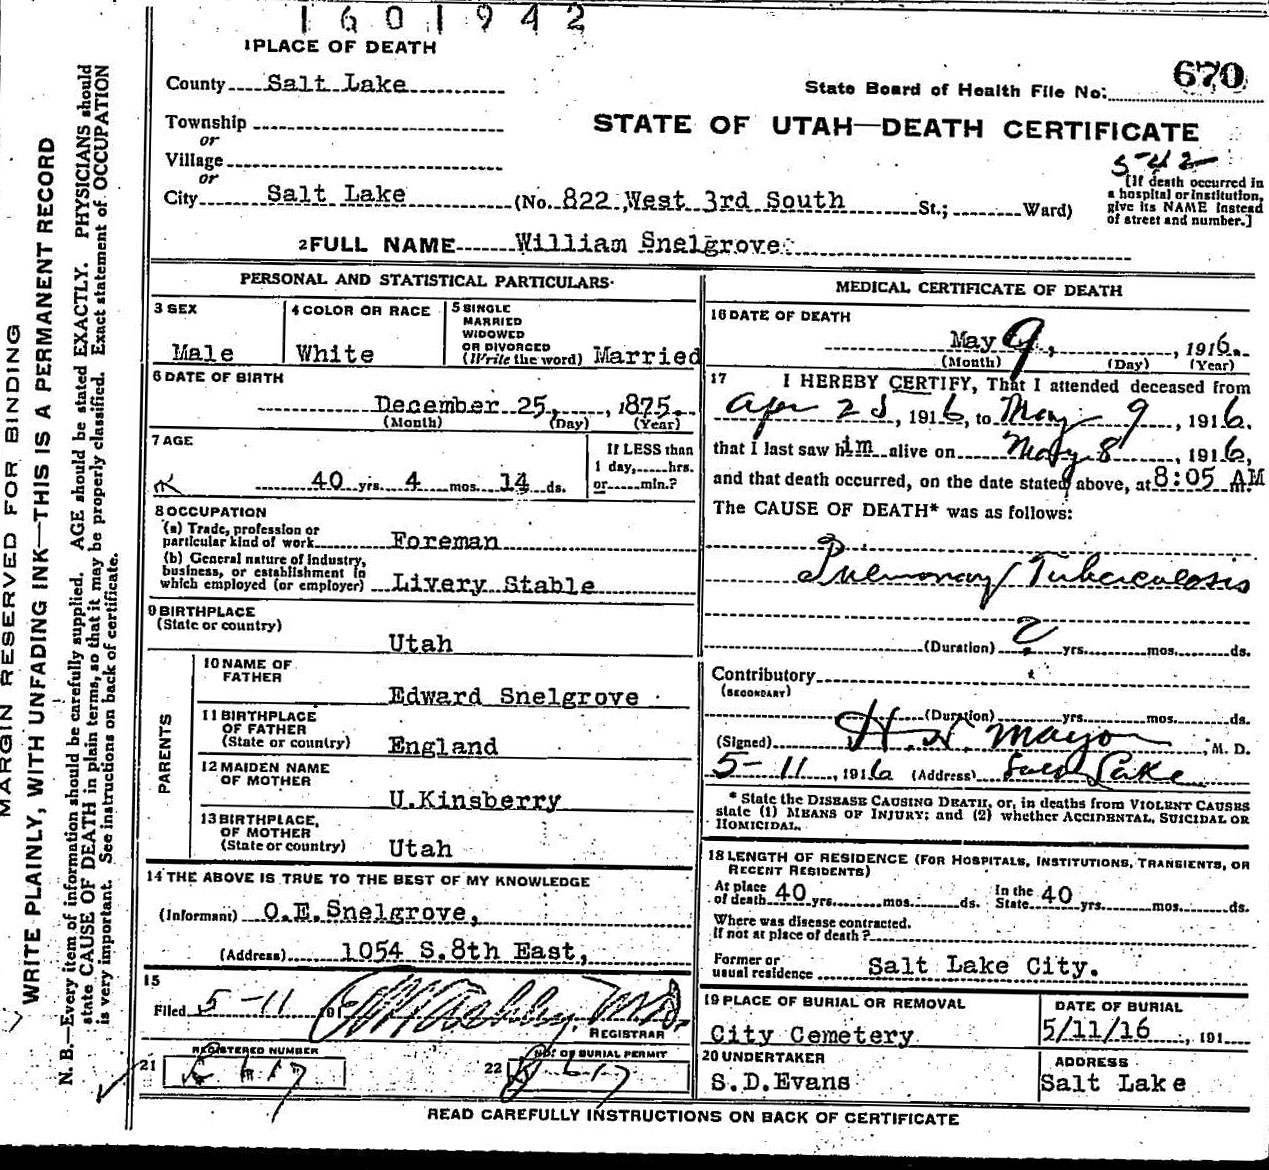 1601942
1 PLACE OF DEATH
County Salt Lake
State Board of Health File No. 670
Township
or
Village
or
City Salt Lake (No. 822 West 3rd South St.; Ward)
STATE OF UTAH—DEATH CERTIFICATE
542
[If death occurred in
a hospital or institution,
give its NAME instead
of street and number.]
2 FULL NAME William Snelgrove
PERSONAL AND STATISTICAL PARTICULARS
3 SEX
Male
4 COLOR OR RACE
White
5 SINGLE
MARRIED
WIDOWED
OR DIVORCED
(Write the word) Married
6 DATE OF BIRTH
December 25, 1875.
(Month) (Day) (Year)
7 AGE
40 yrs. 4 mos. 14 ds.
If LESS than
1 day, hrs.
or min.?
8 OCCUPATION
(a) Trade, profession or
particular kind of work Foreman
(b) General nature of industry,
business, or establishment in
which employed (or employer) Livery Stable
9 BIRTHPLACE
(State or country)
Utah
PARENTS
10 NAME OF
FATHER
Edward Snelgrove
11 BIRTHPLACE
OF FATHER
(State or country) England
12 MAIDEN NAME
OF MOTHER
U.Kinsberry
13 BIRTHPLACE,
OF MOTHER
(State or country) Utah
14 THE ABOVE IS TRUE TO THE BEST OF MY KNOWLEDGE
(Informant) O.E.Snelgrove,
(Address) 1054 S.8th East,
15
Filed 5-11 191
REGISTRAR
21 REGISTERED NUMBER
22 NO. OF BURIAL PERMIT
MEDICAL CERTIFICATE OF DEATH
16 DATE OF DEATH
May 9, 1916.
(Month) (Day) (Year)
17 I HEREBY CERTIFY, That I attended deceased from
Apr 1916, to May 9, 1916.
that I last saw him alive on May 8, 1916,
and that death occurred, on the date stated above, at 8:05 AM m.
The CAUSE OF DEATH* was as follows:
Pulmonary Tuberculosis
(Duration) ? yrs. mos. ds.
Contributory
(SECONDARY)
(Duration) yrs. mos. ds.
(Signed) H. N. Mayo, M. D.
5-11, 1916 (Address) Salt Lake
* State the DISEASE CAUSING DEATH, or, in deaths from VIOLENT CAUSES
state (1) MEANS OF INJURY; and (2) whether ACCIDENTAL, SUICIDAL OR
HOMICIDAL.
18 LENGTH OF RESIDENCE (FOR HOSPITALS, INSTITUTIONS, TRANSIENTS, OR
RECENT RESIDENTS)
At place
of death 40 yrs. mos. ds.
In the
State 40 yrs. mos. ds.
Where was disease contracted.
if not at place of death?
Former or
usual residence Salt Lake City.
19 PLACE OF BURIAL OR REMOVAL
City Cemetery
DATE OF BURIAL
5/11/16, 191
20 UNDERTAKER
S.D.Evans
ADDRESS
Salt Lake
READ CAREFULLY INSTRUCTIONS ON BACK OF CERTIFICATE
MARGIN RESERVED FOR BINDING
WRITE PLAINLY, WITH UNFADING INK—THIS IS A PERMANENT RECORD
N. B.—Every item of information should be carefully supplied. AGE should be stated EXACTLY. PHYSICIANS should
state CAUSE OF DEATH in plain terms, so that it may be properly classified. Exact statement of OCCUPATION
is very important. See instructions on back of certificate.